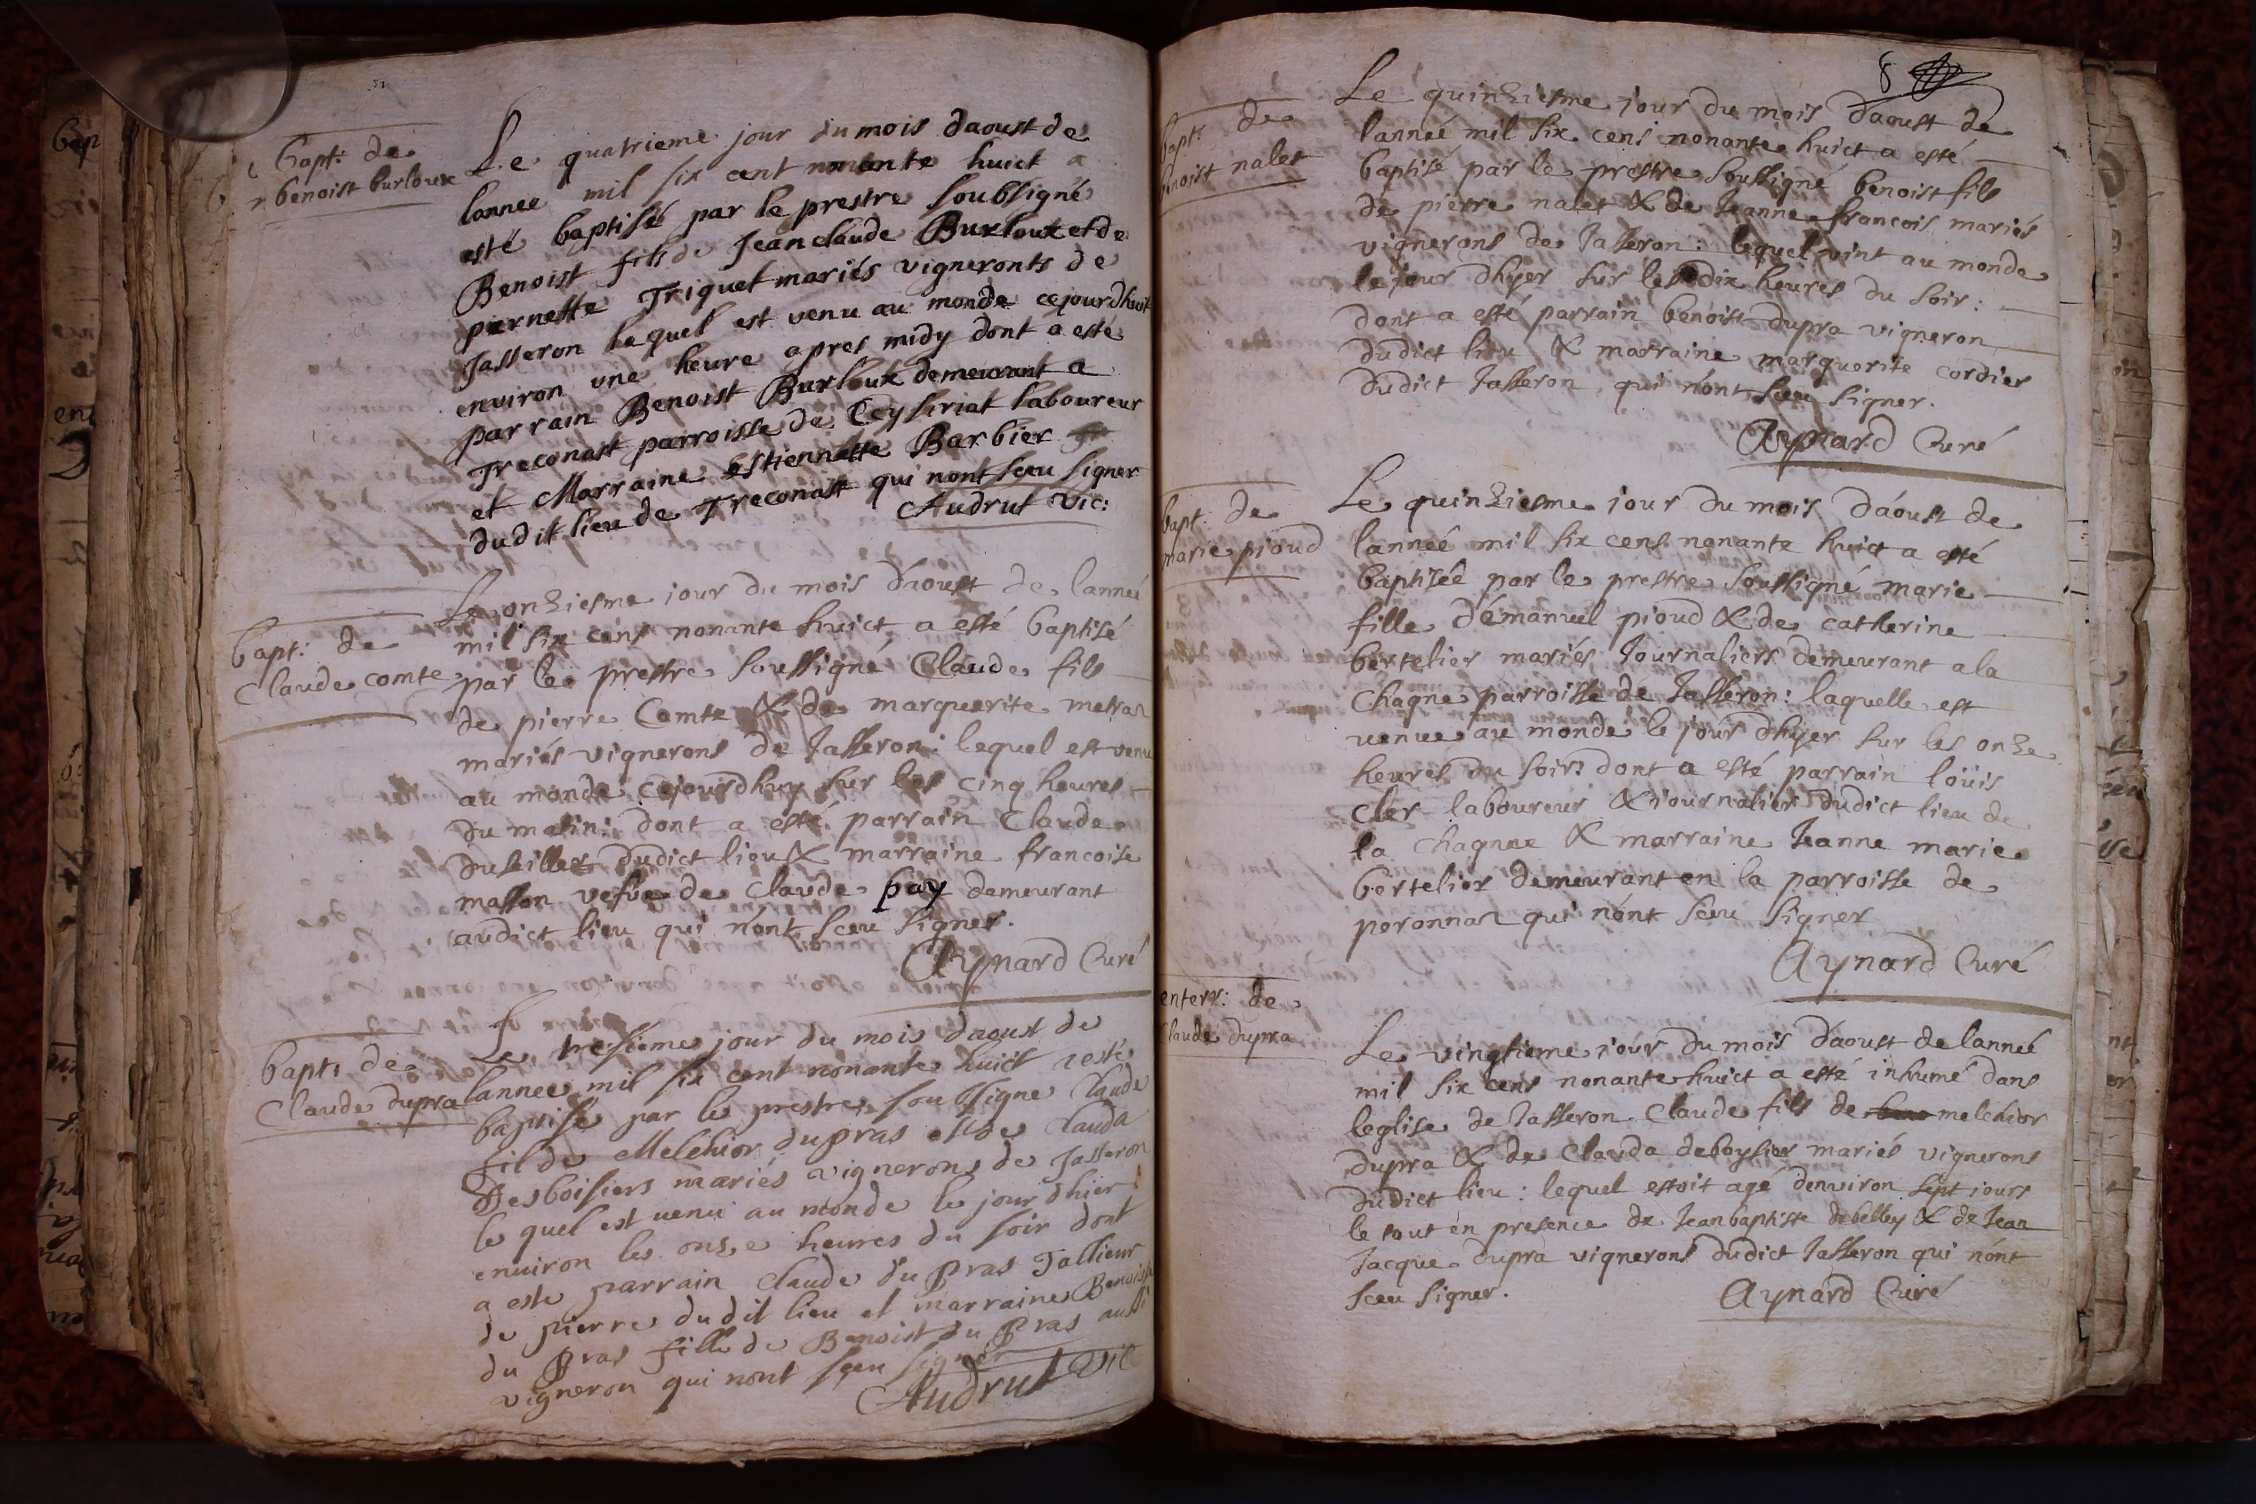 bapt: de
benoist burloux
Le quatrieme jour du mois daoust de
lannee mil six cent nonante huict a
esté baptisé par le prestre soubsigné
Benoist fils de Jean claude Burloux et de
pernette Triquet mariés vigneronts de
Jasseron lequel est venu au monde cejourdhuit
environ une heure apres midy dont a esté
parrain Benoist Burloux demeurant a
Treconast parroisse de Ceyseriat laboureur
et Marraine Estiennette Barbier
dudit lieu de Treconast qui nont sceu signer
Audrut vic:
bapt: de
Claude comte
Le onziesme iour du mois daoust de lanneé
mil six cens nonante huict a esté baptisé
par le prestre soussigné Claude fils
de pierre Comte & de marguerite metras
mariés vignerons de Jasseron: lequel est venu
au monde cejourdhuy sur les cinq heures
du matin: dont a esté parrain Claude
dudict lieu & marraine francoise
masson vefve de Claude bay demeurant
audict lieu qui n'ont sceu signer.
Aynard Curé
bapt: de
Claude dupra
Le tresieme jour du mois daoust de
lannee mil six cent nonante huict a esté
baptisé par le prestre soubsigne Claude
fil de Melchior dupras et de Clauda
Desboisiers mariés vignerons de Jasseron
le quel est venu au monde le jour dhier
enuiron les onse heures du soir dont
a este parrain Claude du pras Tallieur
de pierre dudit lieu et marraine Benoiste
du pras fille de Benoist du pras aussi
vigneron qui nont sceu signer
Audrut vic
8
bapt: de
benoist nalet
Le quinziesme iour du mois daoust de
lanneé mil six cens nonante huict a esté
baptisé par le prestre soussigné benoist fils
de pierre nalet & de Jeanne francois mariés
vignerons de Jasseron: lequel vint au monde
le jour dhyer sur les dix heures du soir:
dont a esté parrain benoist dupra vigneron
dudict lieu & marraine marguerite cordier
dudict Jasseron, qui n'ont sceu signer.
Aynard Curé
bapt: de
marie pioud
Le quinziesme iour du mois daoust de
lanneé mil six cens nonante huict a esté
baptizeé par le prestre soussigné marie
fille démanuel pioud & de catherine
bertelier mariés Journaliers demeurant a la
Chagne parroisse de Jasseron: laquelle est
venue au monde le jour dhyer sur les onze
heures du soir: dont a esté parrain loüis
cler laboureur & iournalier dudict lieu de
la Chagne & marraine Jeanne marie
bertelier demeurant en la parroisse de
peronnas qui nont sceu signer
Aynard Curé
enterr: de
Claude dupra
Le vingtieme iour du mois daoust de lanneé
mil six cens nonante huict a esté inhumé dans
leglise de Jasseron Claude fils de melchior
dupra & de Clauda deboysier mariés vignerons
dudict lieu: lequel estoit agé denviron sept iours
le tout en presence de Jean baptiste debelley & de Jean
Jacque dupra vignerons dudict Jasseron qui n'ont
sceu signer.
Aynard Curé